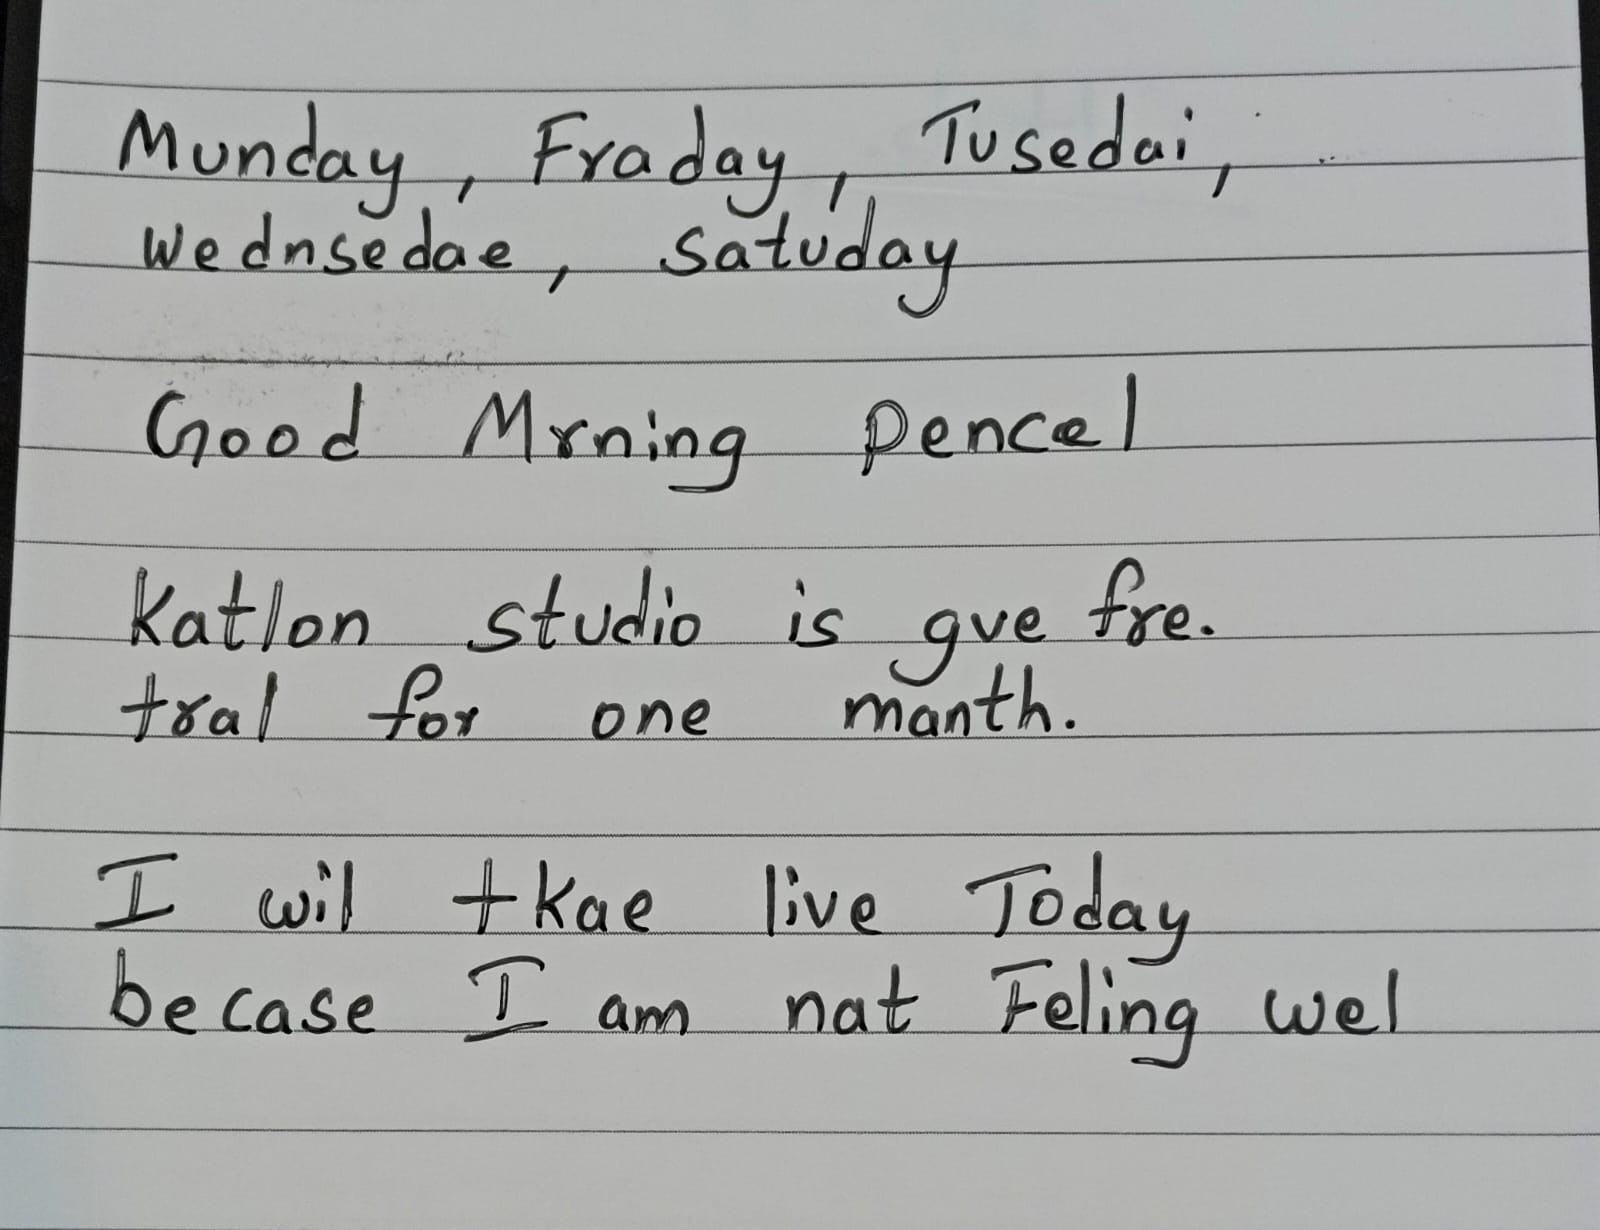 Munday, Fraday, Tusedai,
wednsedae, satuday
Good Mrning pencel
Katlon studio is gve fre.
tral for one manth.
I wil tkae live Today
becase I am nat Feling wel